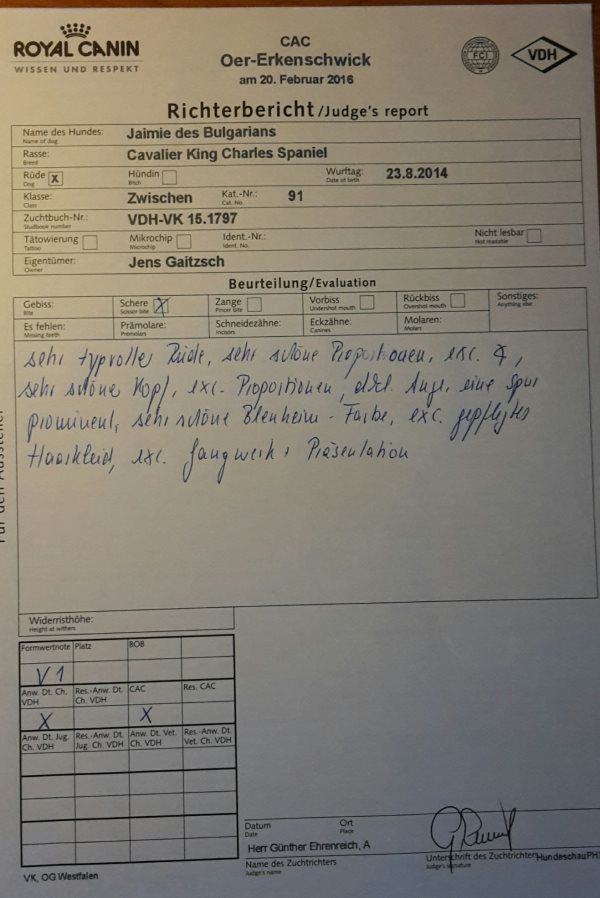 ROYAL CANIN
WISSEN UND RESPEKT
CAC
Oer-Erkenschwick
am 20. Februar 2016
FCI
VDH
Richterbericht/Judge's report
Name des Hundes: Jaimie des Bulgarians
Name of dog
Rasse: Cavalier King Charles Spaniel
Breed
Rüde X Hündin Wurftag: 23.8.2014
Dog Bitch Date of birth
Klasse: Zwischen Kat.-Nr.: 91
Class Cat. No.
Zuchtbuch-Nr.: VDH-VK 15.1797
Studbook number
Tätowierung Mikrochip Ident.-Nr.: Nicht lesbar
Tattoo Microchip Ident. No. Not readable
Eigentümer: Jens Gaitzsch
Owner
Beurteilung/Evaluation
Gebiss: Schere X Zange Vorbiss Rückbiss Sonstiges:
Bite Scissor bite Pincer bite Undershot mouth Overshot mouth Anything else
Es fehlen: Prämolare: Schneidezähne: Eckzähne: Molaren:
Missing teeth Premolars Incisors Canines Molars
sehr typvoller Rüde, sehr schöne Proportionen, exc.
sehr schöne Kopf, exc. Proportionen, dkl. Auge, eine Spur
prominent, sehr schöne Blenheim-Farbe, exc. gepflegtes
Haarkleid, exc. Gangwerk + Präsentation
Für den Aussteller
Widerristhöhe:
Height at withers
Formwertnote Platz BOB
V1
Anw. Dt. Ch. VDH Res.-Anw. Dt. Ch. VDH CAC Res. CAC
X X
Anw. Dt. Jug. Ch. VDH Res.-Anw. Dt. Jug. Ch. VDH Anw. Dt. Vet. Ch. VDH Res.-Anw. Dt. Vet. Ch. VDH
Datum Ort
Date Place
Herr Günther Ehrenreich, A
Name des Zuchtrichters Unterschrift des Zuchtrichters HundeschauPH
Judge's name Judge's signature
VK, OG Westfalen